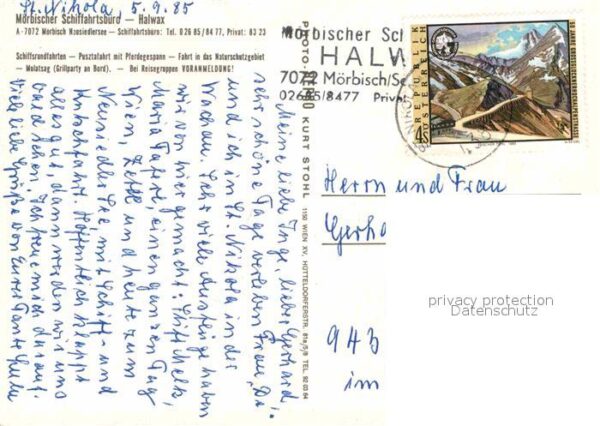 St. Nikola, 5.9.85
Mörbischer Schiffahrtsbüro — Halwax
A-7072 Mörbisch Neusiedlersee — Schiffahrtsbüro: Tel. 02685/8477, Privat: 8323
Schiffsrundfahrten — Pusztafahrt mit Pferdegespann — Fahrt in das Naturschutzgebiet
— Molatsag (Grillparty an Bord). — Bei Reisegruppen VORANMELDUNG!
Meine liebe Inge, lieber Gerhard!
sehr schöne Tage verleben Frau
und ich in St. Nikola in der
Wachau. Sehr viele Ausflüge haben
wir von hier gemacht: Stift Melk,
Maria Taferl, einen ganzen Tag
Wien, und heute zum
Neusiedler See, mit Schiff- und
Kutschfahrt. Hoffentlich klappt
alles gut, dann werden wir uns
bald sehen. Ich freue mich darauf.
Viele liebe Grüße von Eurer Tante
PHOTO- KURT STOHL 1150 WIEN XV, HÜTTELDORFERSTR. 81a/5/8 TEL 92 03 64
Mörbischer Sch
HALW
7072 Mörbisch/Se
02685/8477 Privat
REPUBLIK ÖSTERREICH
50 JAHRE GROSSGLOCKNER HOCHALPENSTRASSE
S 4
Herrn und Frau
Gerha
943
im
privacy protection
Datenschutz